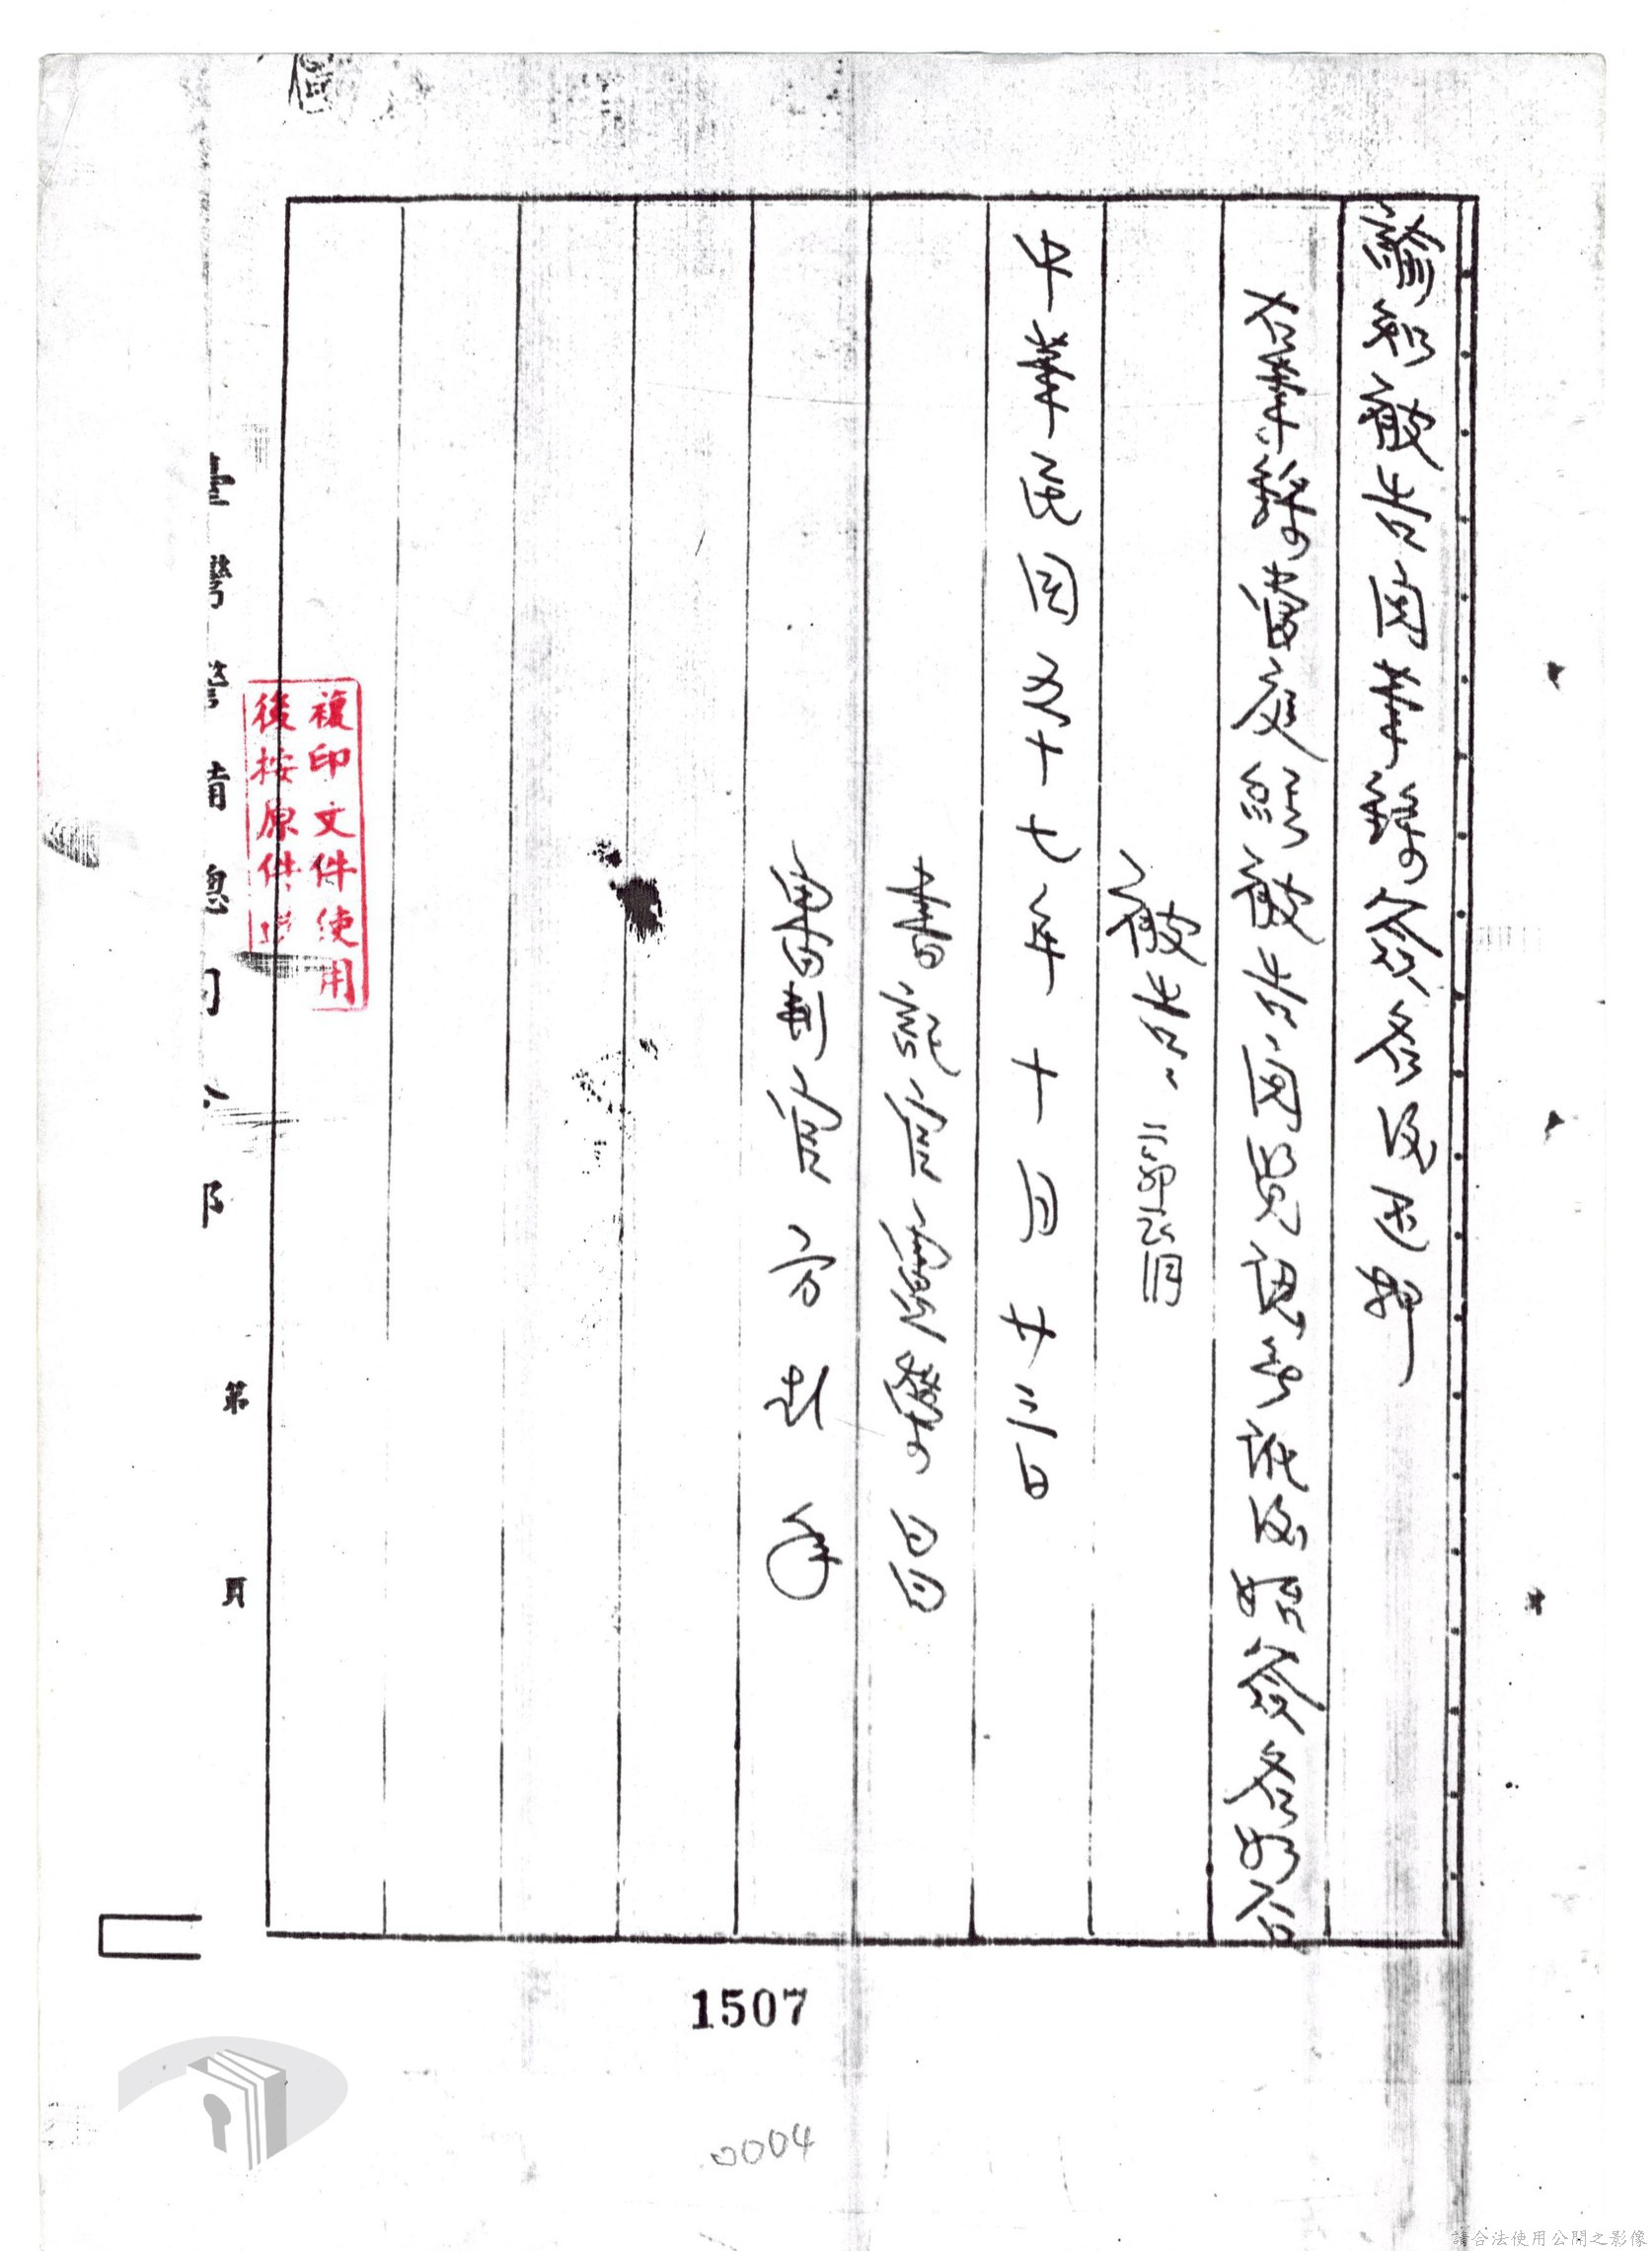 諭知被告閱筆錄簽名後还押
右筆錄當庭經被告閱覽認無訛後始簽名於右
被告
中華民國五十七年十月廿三日
書記官
審判官
複印文件使用
後按原件
灣警備總司
第 頁
1507
0004
請合法使用公開之影像